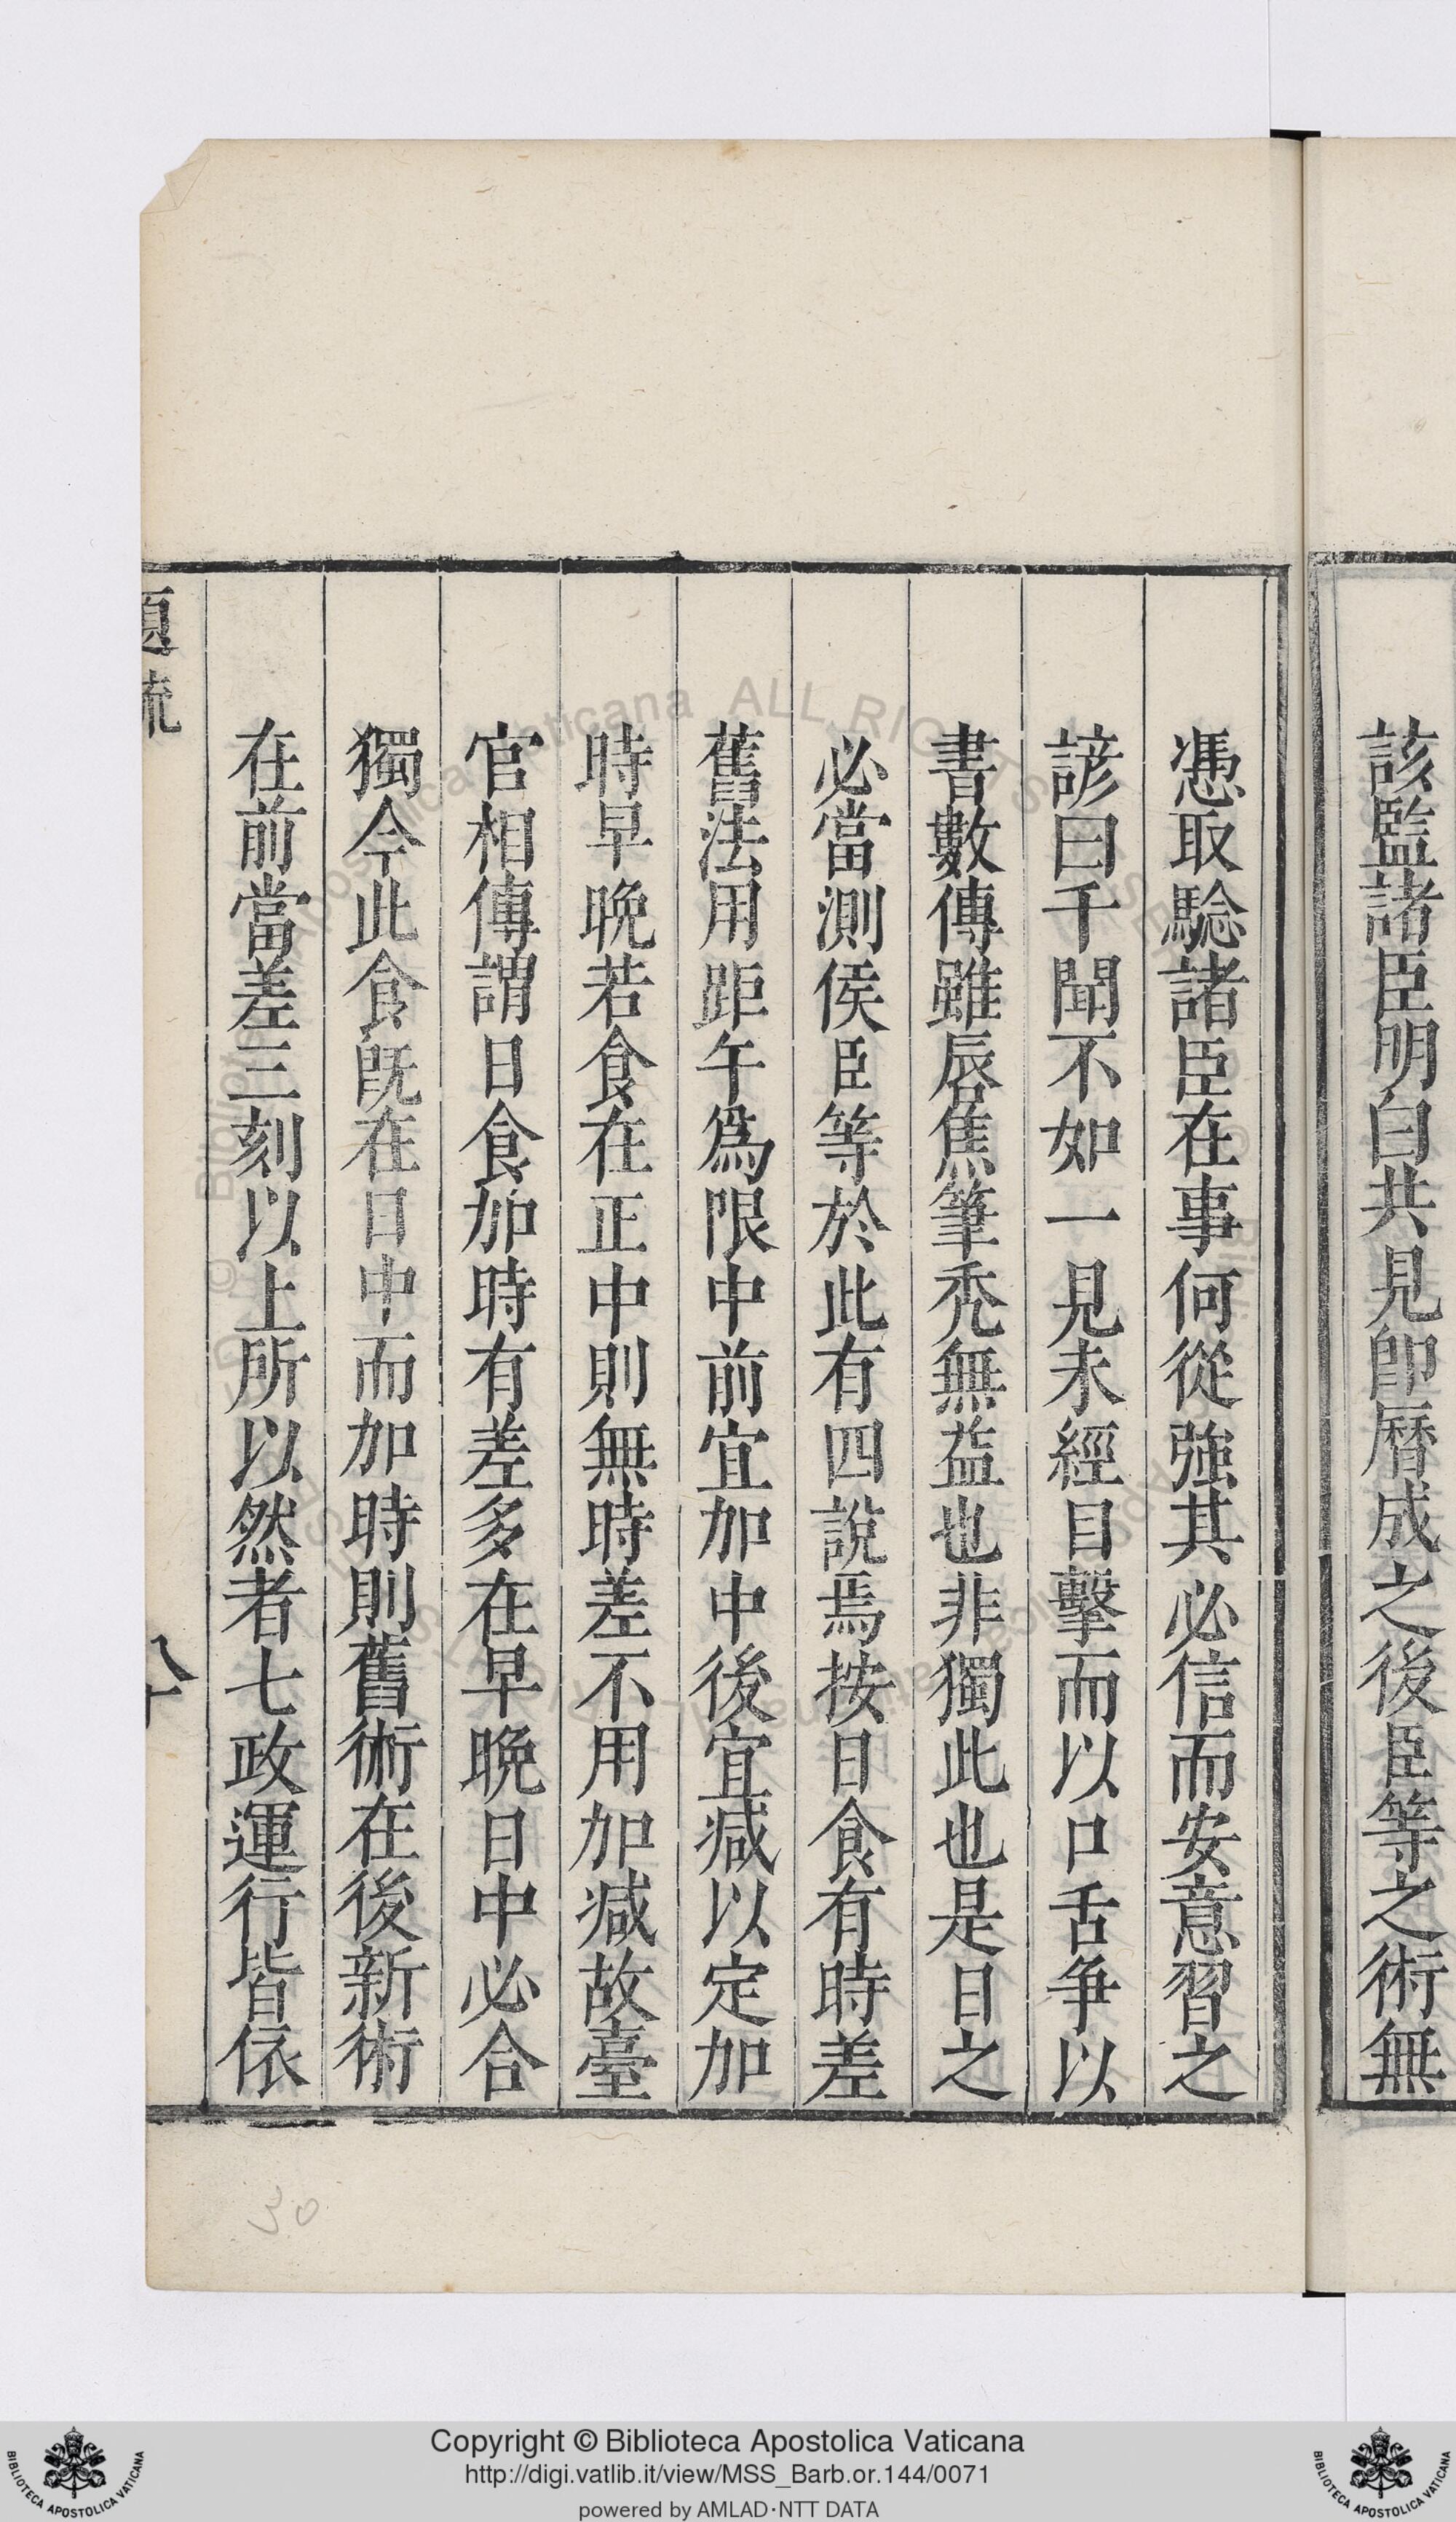 該監諸臣明白共見卽曆成之後臣等之術無
憑取驗諸臣在事何從強其必信而安意習之
諺曰千聞不如一見未經目擊而以口舌争以
書數傳雖唇焦筆禿無益也非獨此也是日之
必當測候臣等於此有四說焉按日食有時差
舊法用距午爲限中前宜加中後宜减以定加
時早晚若食在正中則無時差不用加减故臺
官相傳謂日食加時有差多在早晚日中必合
獨今此食旣在日中而加時則舊術在後新術
在前當差三刻以上所以然者七政運行皆依
八十
30
Copyright © Biblioteca Apostolica Vaticana
http://digi.vatlib.it/view/MSS_Barb.or.144/0071
powered by AMLAD·NTT DATA
BIBLIOTECA APOSTOLICA VATICANA
BIBLIOTECA APOSTOLICA VATICANA